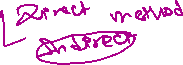 Direct method
Indirect